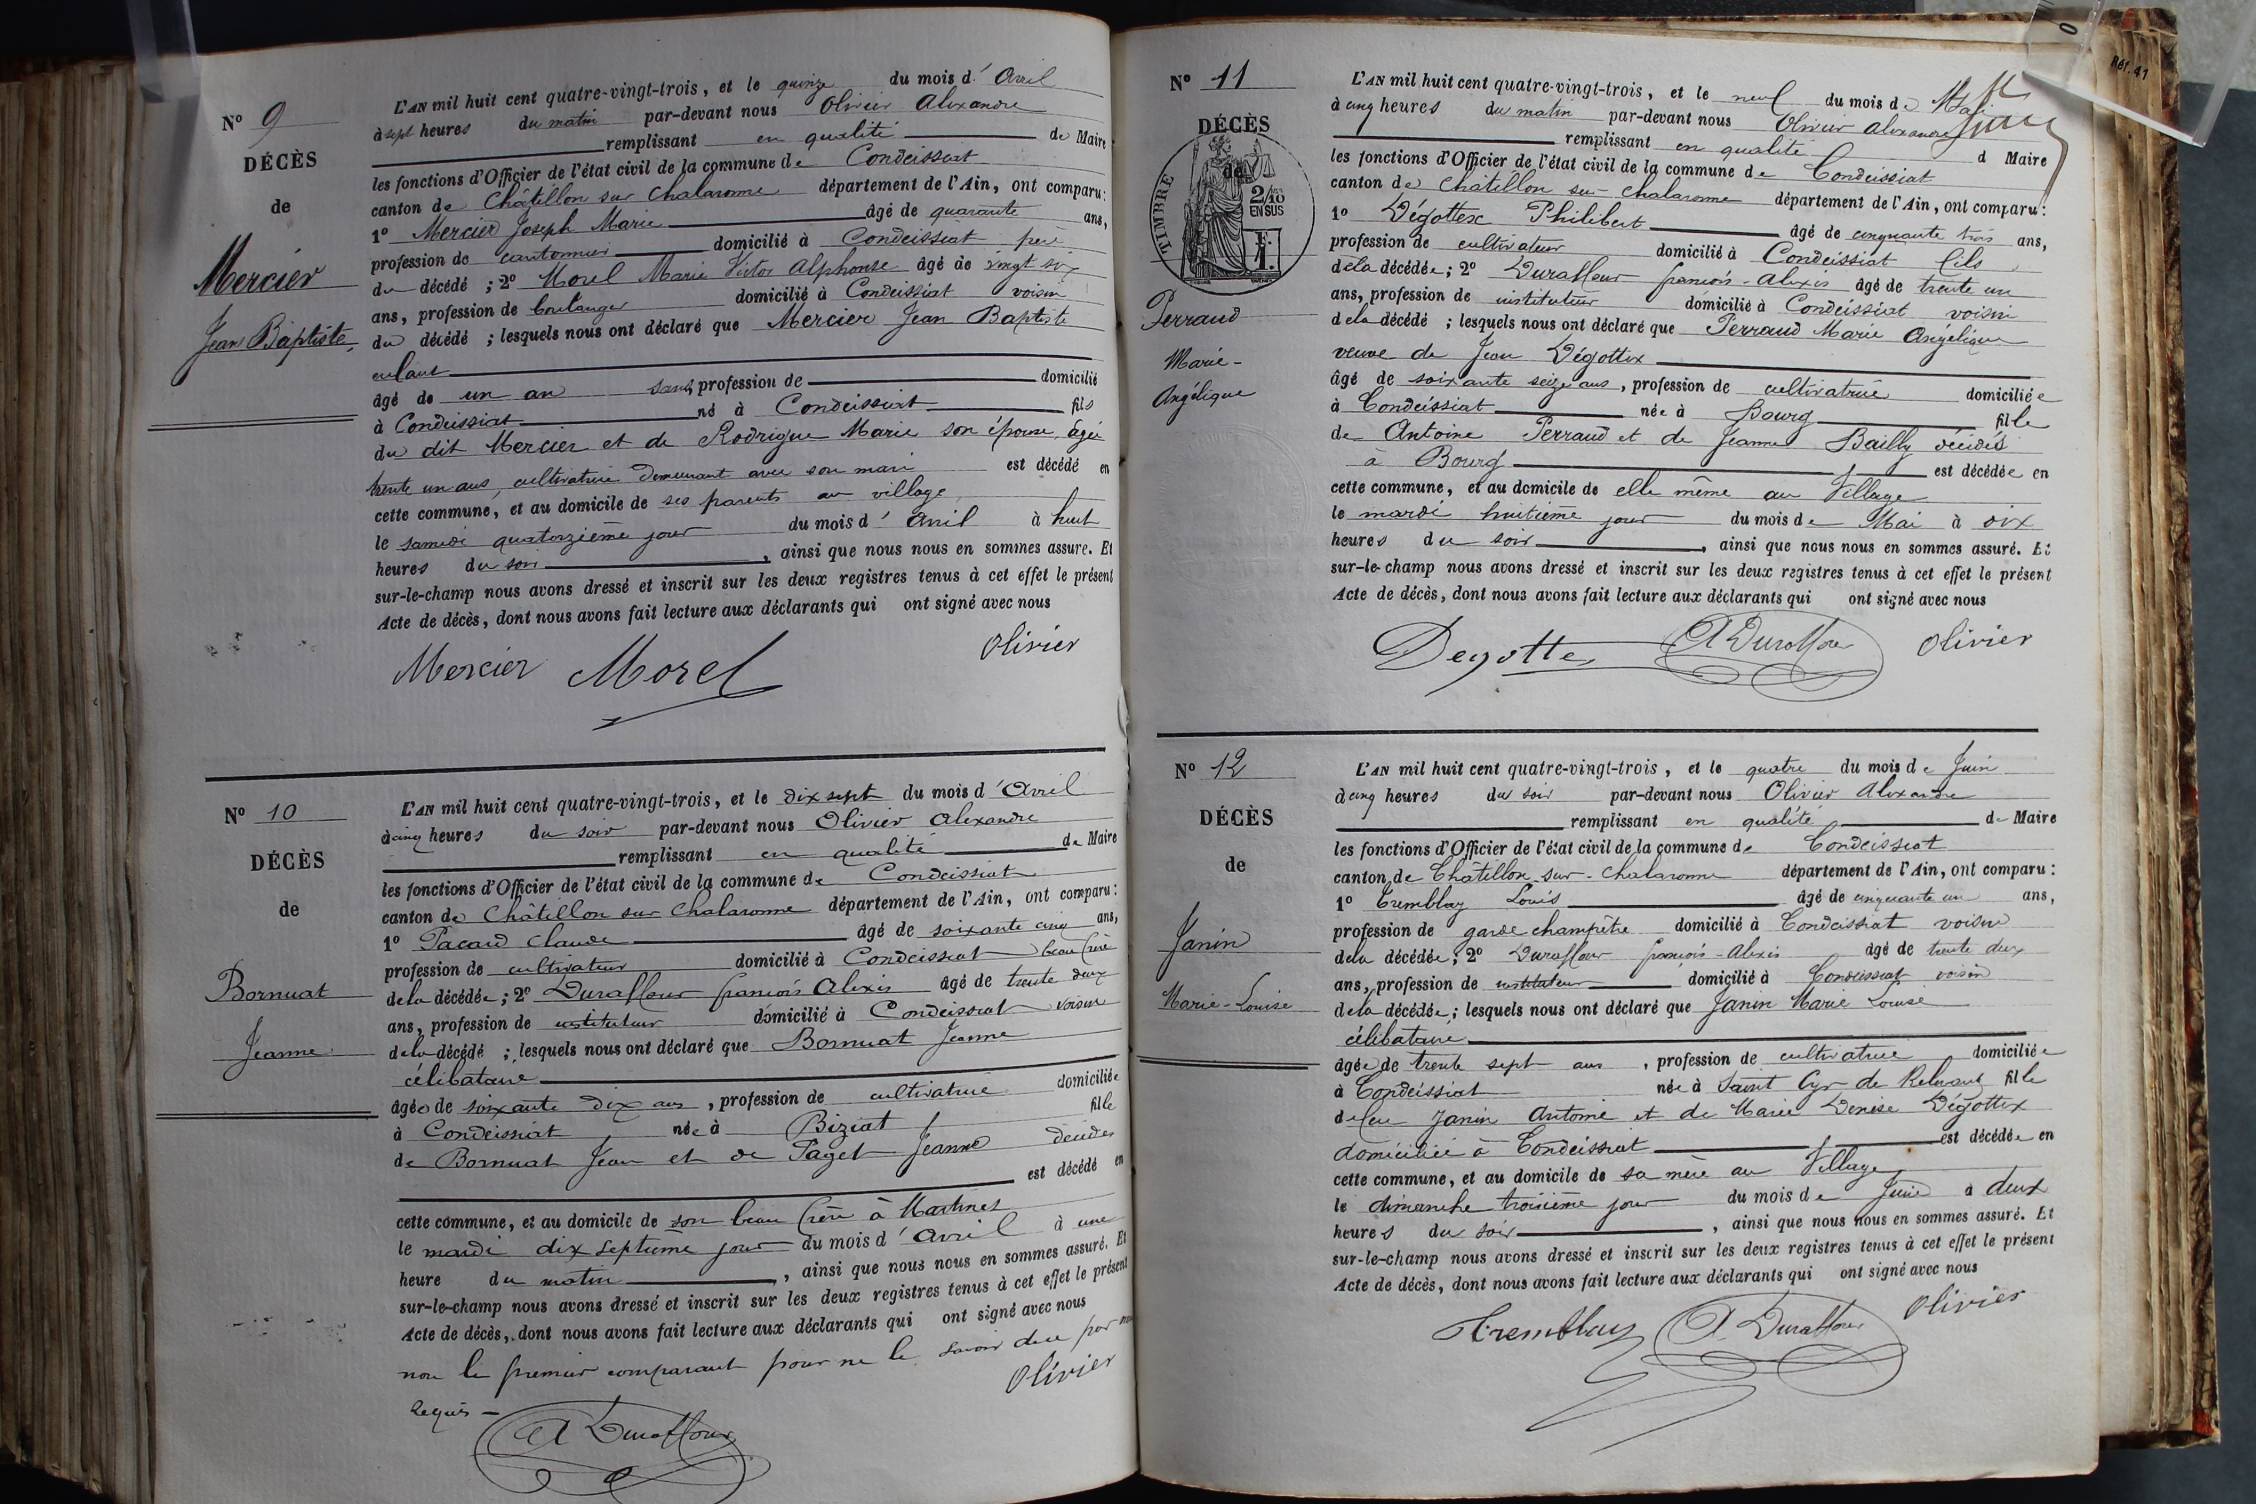 N° 9
DÉCÈS
de
Mercier
Jean Baptiste
L'AN mil huit cent quatre-vingt-trois, et le quinze du mois d' Avril
à sept heures du matin par-devant nous Olivier Alexandre
remplissant en qualité de Maire
les fonctions d'Officier de l'état civil de la commune de Condeissiat
canton de Châtillon sur Chalaronne département de l'Ain, ont comparu:
1° Mercier Joseph Marie âgé de quarante ans,
profession de cantonnier domicilié à Condeissiat père
du décédé ; 2° Morel Marie Victor Alphonse âgé de vingt six
ans, profession de boulanger domicilié à Condeissiat voisin
du décédé ; lesquels nous ont déclaré que Mercier Jean Baptiste
enfant
âgé de un an sans profession de domicilié
à Condeissiat né à Condeissiat fils
du dit Mercier et de Rodrigue Marie son épouse, âgée
trente un ans, cultivatrice demeurant avec son mari est décédé en
cette commune, et au domicile de ses parents au village
le samedi quatorzième jour du mois d' Avril à huit
heures du soir, ainsi que nous nous en sommes assuré. Et
sur-le-champ nous avons dressé et inscrit sur les deux registres tenus à cet effet le présent
Acte de décès, dont nous avons fait lecture aux déclarants qui ont signé avec nous
Mercier Morel Olivier
N° 10
DÉCÈS
de
Bornuat
Jeanne
L'AN mil huit cent quatre-vingt-trois, et le dix sept du mois d' Avril
à cinq heures du soir par-devant nous Olivier Alexandre
remplissant en qualité de Maire
les fonctions d'Officier de l'état civil de la commune de Condeissiat
canton de Châtillon sur Chalaronne département de l'Ain, ont comparu:
1° Pacard Claude âgé de soixante cinq ans,
profession de cultivateur domicilié à Condeissiat beau frère
de la décédée; 2° Duraffour françois Alexis âgé de trente deux
ans, profession de instituteur domicilié à Condeissiat voisin
de la décédé ; lesquels nous ont déclaré que Bornuat Jeanne
célibataire
âgée de soixante dix ans, profession de cultivatrice domiciliée
à Condeissiat née à Biziat fille
de Bornuat Jean et de Paget Jeanne décédés
est décédé en
cette commune, et au domicile de son beau frère à Martinet
le mardi dix septième jour du mois d' Avril à une
heure du matin, ainsi que nous nous en sommes assuré. Et
sur-le-champ nous avons dressé et inscrit sur les deux registres tenus à cet effet le présent
Acte de décès, dont nous avons fait lecture aux déclarants qui ont signé avec nous
non le premier comparant pour ne le savoir de par nous
requis - Olivier
A Duraffour
Rét. 41
N° 11
DÉCÈS
de
TIMBRE
2/10
EN SUS
F.
1.
Perraud
Marie-
Angélique
L'AN mil huit cent quatre-vingt-trois, et le neuf du mois de Mai
à cinq heures du matin par-devant nous Olivier Alexandre
remplissant en qualité d Maire
les fonctions d'Officier de l'état civil de la commune de Condeissiat
canton de Châtillon sur-Chalaronne département de l'Ain, ont comparu:
1° Dégottex Philibert âgé de cinquante trois ans,
profession de cultivateur domicilié à Condeissiat fils
de la décédée; 2° Duraffour françois-Alexis âgé de trente un
ans, profession de instituteur domicilié à Condeissiat voisin
de la décédé ; lesquels nous ont déclaré que Perraud Marie Angélique
veuve de Jean Dégottex
âgé de soixante seize ans, profession de cultivatrice domiciliée
à Condeissiat née à Bourg fille
de Antoine Perraud et de Jeanne Bailly décédés
à Bourg est décédée en
cette commune, et au domicile de elle même au Village
le mardi huitième jour du mois de Mai à dix
heures du soir, ainsi que nous nous en sommes assuré. Et
sur-le-champ nous avons dressé et inscrit sur les deux registres tenus à cet effet le présent
Acte de décès, dont nous avons fait lecture aux déclarants qui ont signé avec nous
Degottex A Duraffour Olivier
N° 12
DÉCÈS
de
Janin
Marie-Louise
L'AN mil huit cent quatre-vingt-trois, et le quatre du mois de Juin
à cinq heures du soir par-devant nous Olivier Alexandre
remplissant en qualité de Maire
les fonctions d'Officier de l'état civil de la commune de Condeissiat
canton de Châtillon-sur-Chalaronne département de l'Ain, ont comparu:
1° Tremblay Louis âgé de cinquante un ans,
profession de garde champêtre domicilié à Condeissiat voisin
de la décédée; 2° Duraffour françois-Alexis âgé de trente deux
ans, profession de instituteur domicilié à Condeissiat voisin
de la décédée; lesquels nous ont déclaré que Janin Marie Louise
célibataire
âgée de trente sept ans, profession de cultivatrice domiciliée
à Condeissiat née à Saint Cyr de Relevant fille
de feu Janin Antoine et de Marie Denise Dégottex
domiciliée à Condeissiat est décédée en
cette commune, et au domicile de sa mère au Village
le dimanche troisième jour du mois de Juin à deux
heures du soir, ainsi que nous nous en sommes assuré. Et
sur-le-champ nous avons dressé et inscrit sur les deux registres tenus à cet effet le présent
Acte de décès, dont nous avons fait lecture aux déclarants qui ont signé avec nous
Tremblay A. Duraffour Olivier